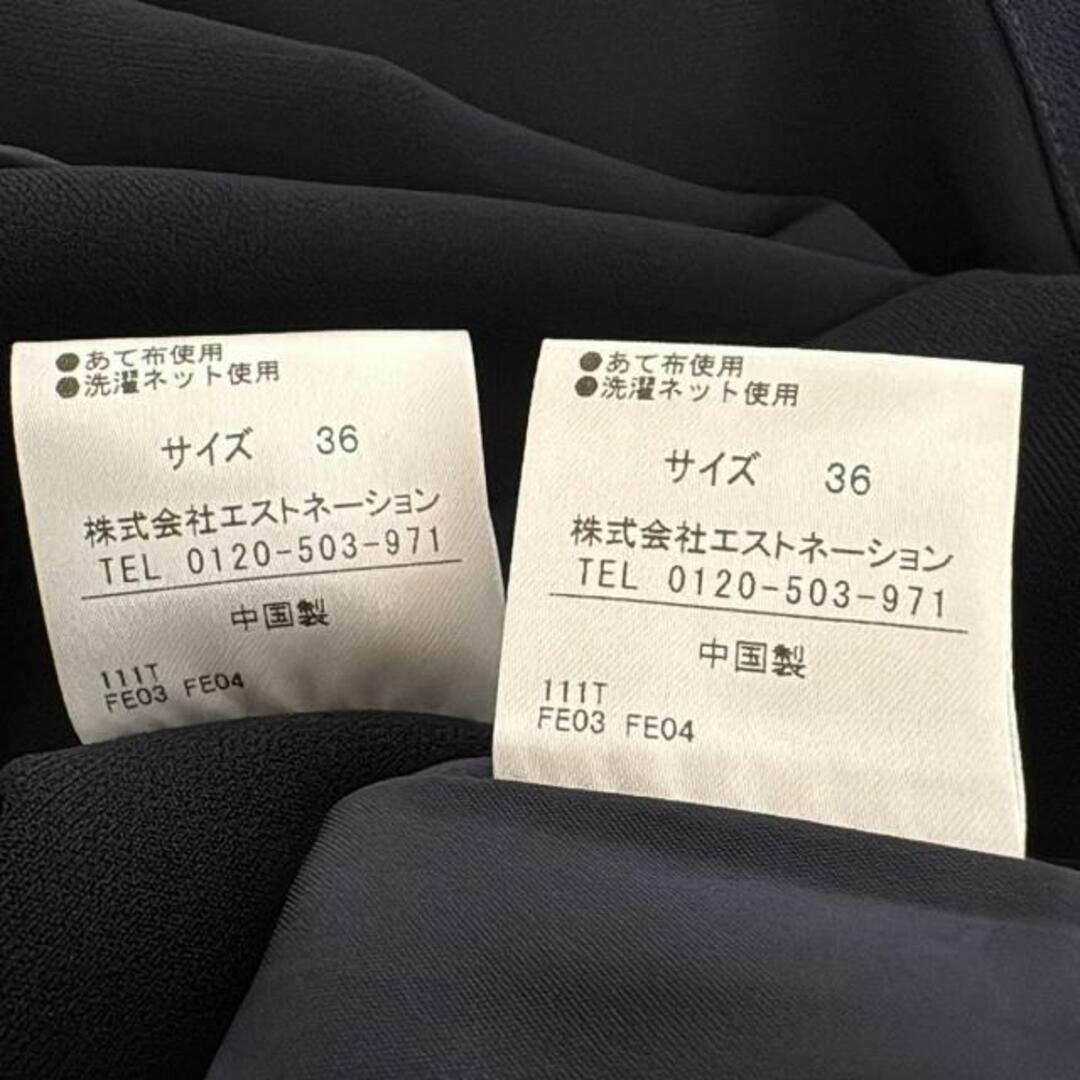 ●あて布使用
●洗濯ネット使用
サイズ 36
株式会社エストネーション
TEL 0120-503-971
中国製
111T
FE03 FE04
●あて布使用
●洗濯ネット使用
サイズ 36
株式会社エストネーション
TEL 0120-503-971
中国製
111T
FE03 FE04